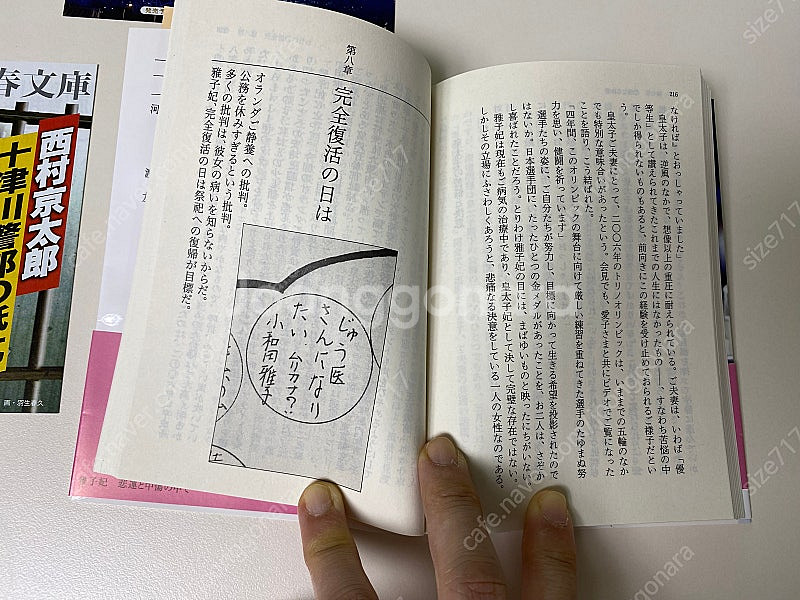 216
なければ」とおっしゃっていました」
皇太子は、逆風のなかで、想像以上の重圧に耐えられている。ご夫妻は、いわば「優
等生」として讃えられてきたこれまでの人生にはなかったもの――、すなわち苦悩の中
でしか得られないものもあると、前向きにこの経験を受け止めておられるご様子だとい
う。
皇太子ご夫妻にとって、二〇〇六年のトリノオリンピックは、いままでの五輪のなか
でも特別な意味合いがあったという。会見でも、愛子さまと共にビデオでご覧になった
ことを語り、こう結ばれた。
「四年間、このオリンピックの舞台に向けて厳しい練習を重ねてきた選手のたゆまぬ努
力を思い、健闘を祈っています」
選手たちの姿に、ご自分たちが努力し、目標に向かって生きる希望を投影されたので
はないか。日本選手団に、たったひとつの金メダルがあったことを、お二人は、さぞか
し喜ばれたことだろう。とりわけ雅子妃の目には、まばゆいものと映ったにちがいない。
雅子妃は現在もご病気の治療中であり、皇太子妃として決して完璧な存在ではない。
しかしその立場にふさわしくあろうと、悲痛なる決意をしている一人の女性なのである。
第八章 完全復活の日は
オランダご静養への批判。
公務を休みすぎるという批判。
多くの批判は、彼女の病いを知らないからだ。
雅子妃、完全復活の日は祭祀への復帰が目標だ。
じゅう医
さんになり
たい。ムリカナ?!
小和田雅子
士
春文庫
西村京太郎
十津川警部の
画・羽生春久
雅子妃 悲運と中傷の中で
発売予
河
nonagonara
size717
cafe.naver.com/nonagonara